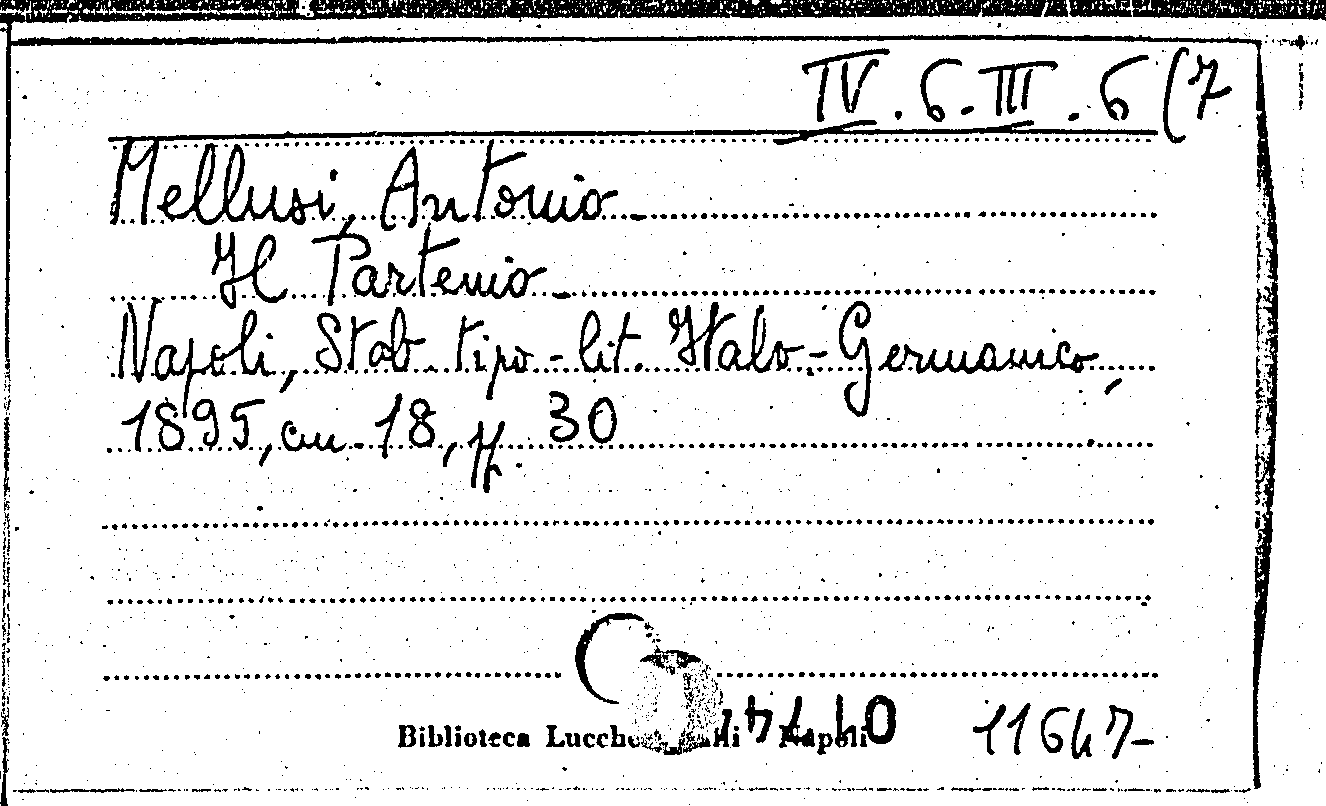 IV. 6. III. 6 (7
Mellusi, Antonio
Il Partenio
Napoli, Stab. tipo-lit. Italo-Germanico,
1895, cm. 18, pp. 30
Biblioteca Napoli
11647